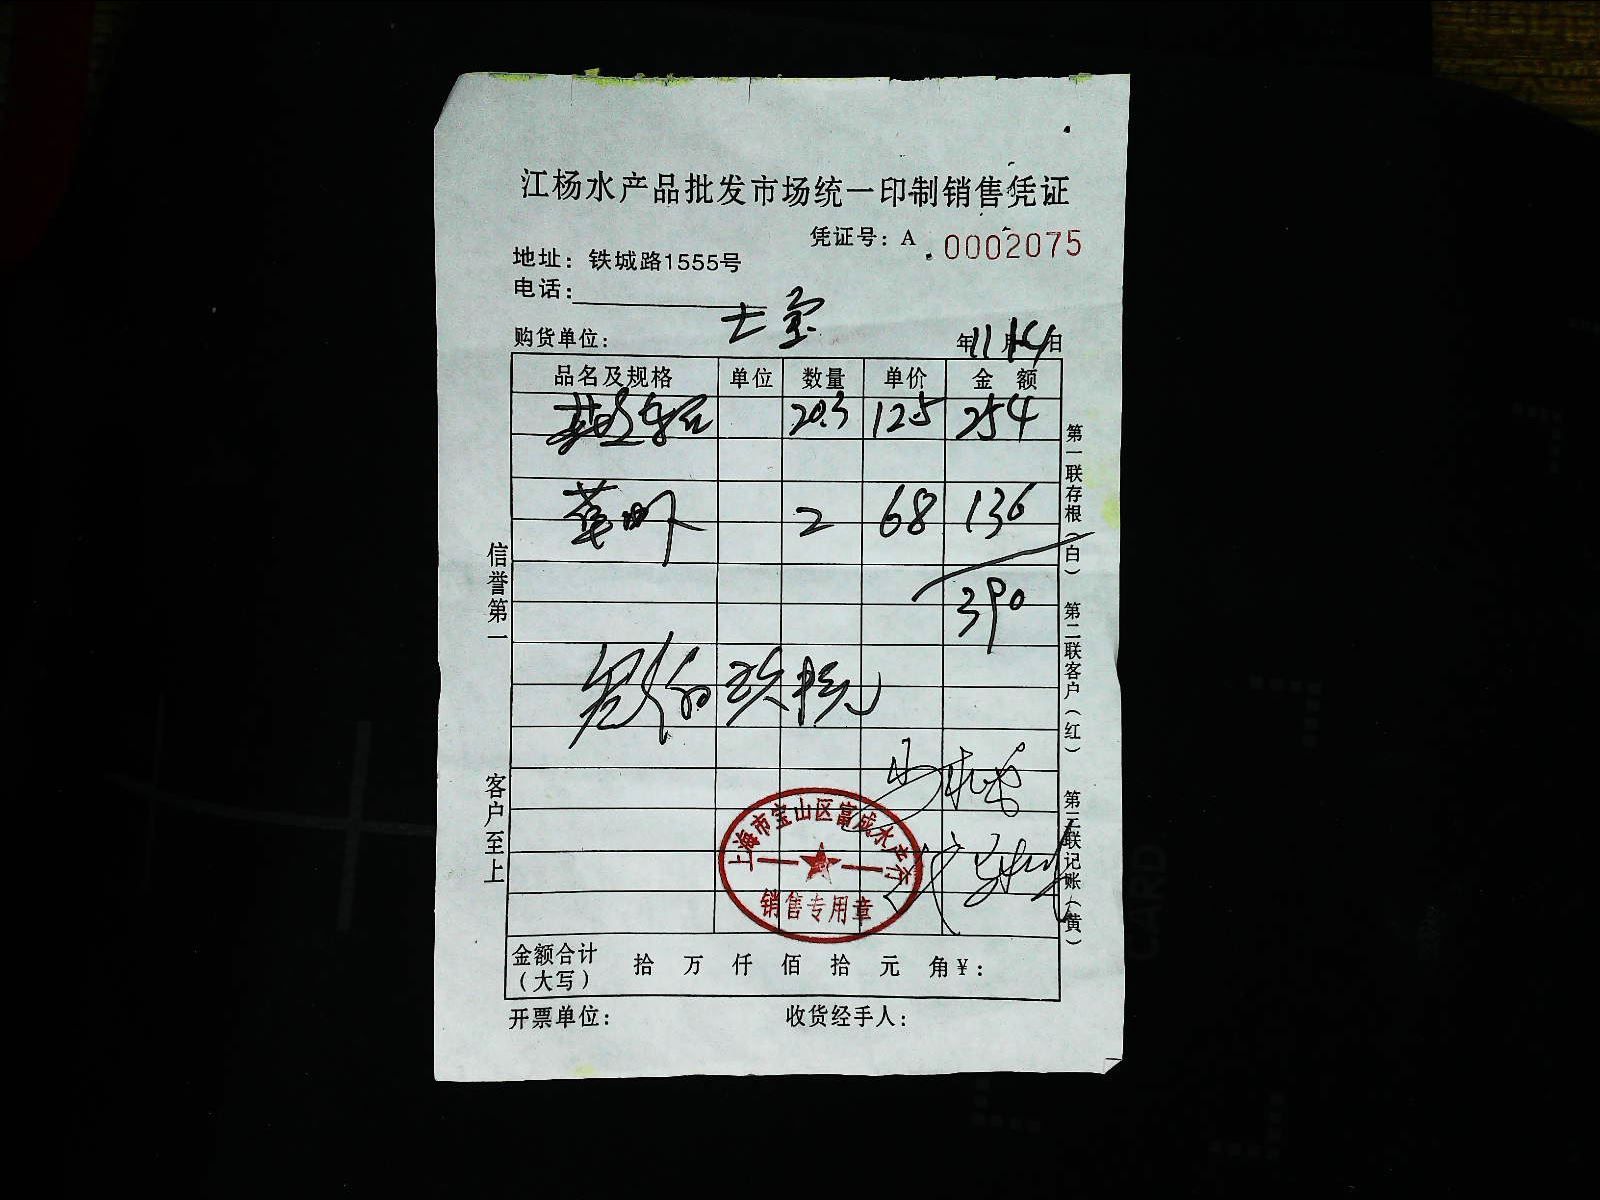 江杨水产品批发市场统一印制销售凭证
凭证号：A 0002075
地址：铁城路1555号
电话：
购货单位： 年11月14日
品名及规格 单位 数量 单价 金 额
20.3 12.5 254
2 68 136
390
叁佰玖拾元
上海市宝山区富成水产行
销售专用章
金额合计（大写） 拾 万 仟 佰 拾 元 角￥：
开票单位： 收货经手人：
信誉第一
客户至上
第一联存根（白）
第二联客户（红）
第三联记账（黄）